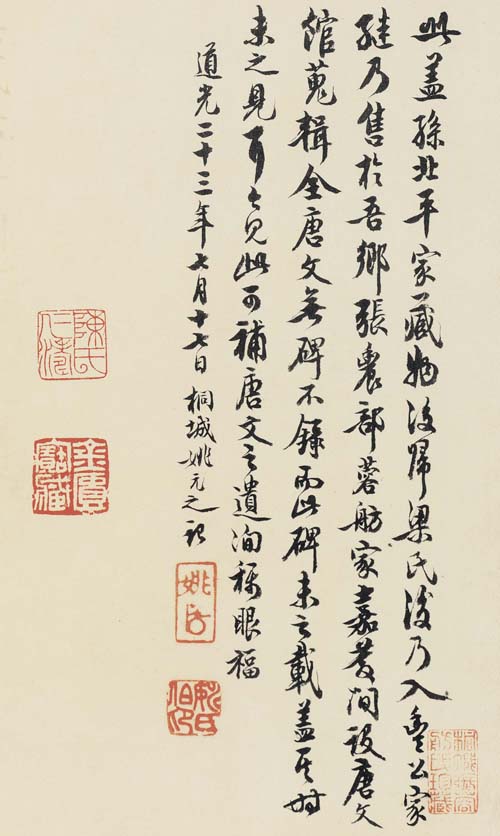 此蓋孫北平家藏物後歸梁氏後乃入豐公家
繼乃售於吾鄉張農部蓉舫家嘉慶間設唐文
館蒐輯全唐文無碑不錄而此碑未之載蓋其時
未之見耳今見此可補唐文之遺洵稱眼福
道光二十三年七月十七日桐城姚元之記
陳氏仁濤
金匱寶藏